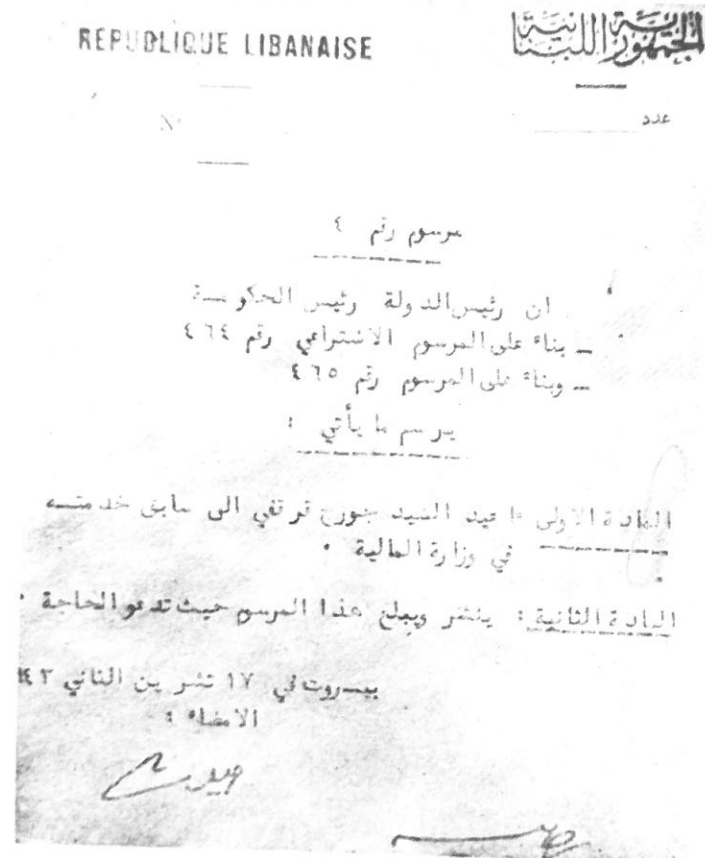 REPUBLIQUE LIBANAISE
الجمهورية اللبنانية
N°
عدد
مرسوم رقم ٤
ان رئيس الدولة رئيس الحكومة
ـ بناءً على المرسوم الاشتراعي رقم ٤٦٤
ـ وبناءً على المرسوم رقم ٤٦٥
يرسم ما يأتي :
المادة الاولى : اعيد السيد جورج ترتفي الى سابق خدمته
في وزارة المالية ٠
المادة الثانية : ينشر ويبلغ هذا المرسم حيث تدعو الحاجة ٠
بيروت في ١٧ تشرين الثاني ٩٤٣
الامضاء :